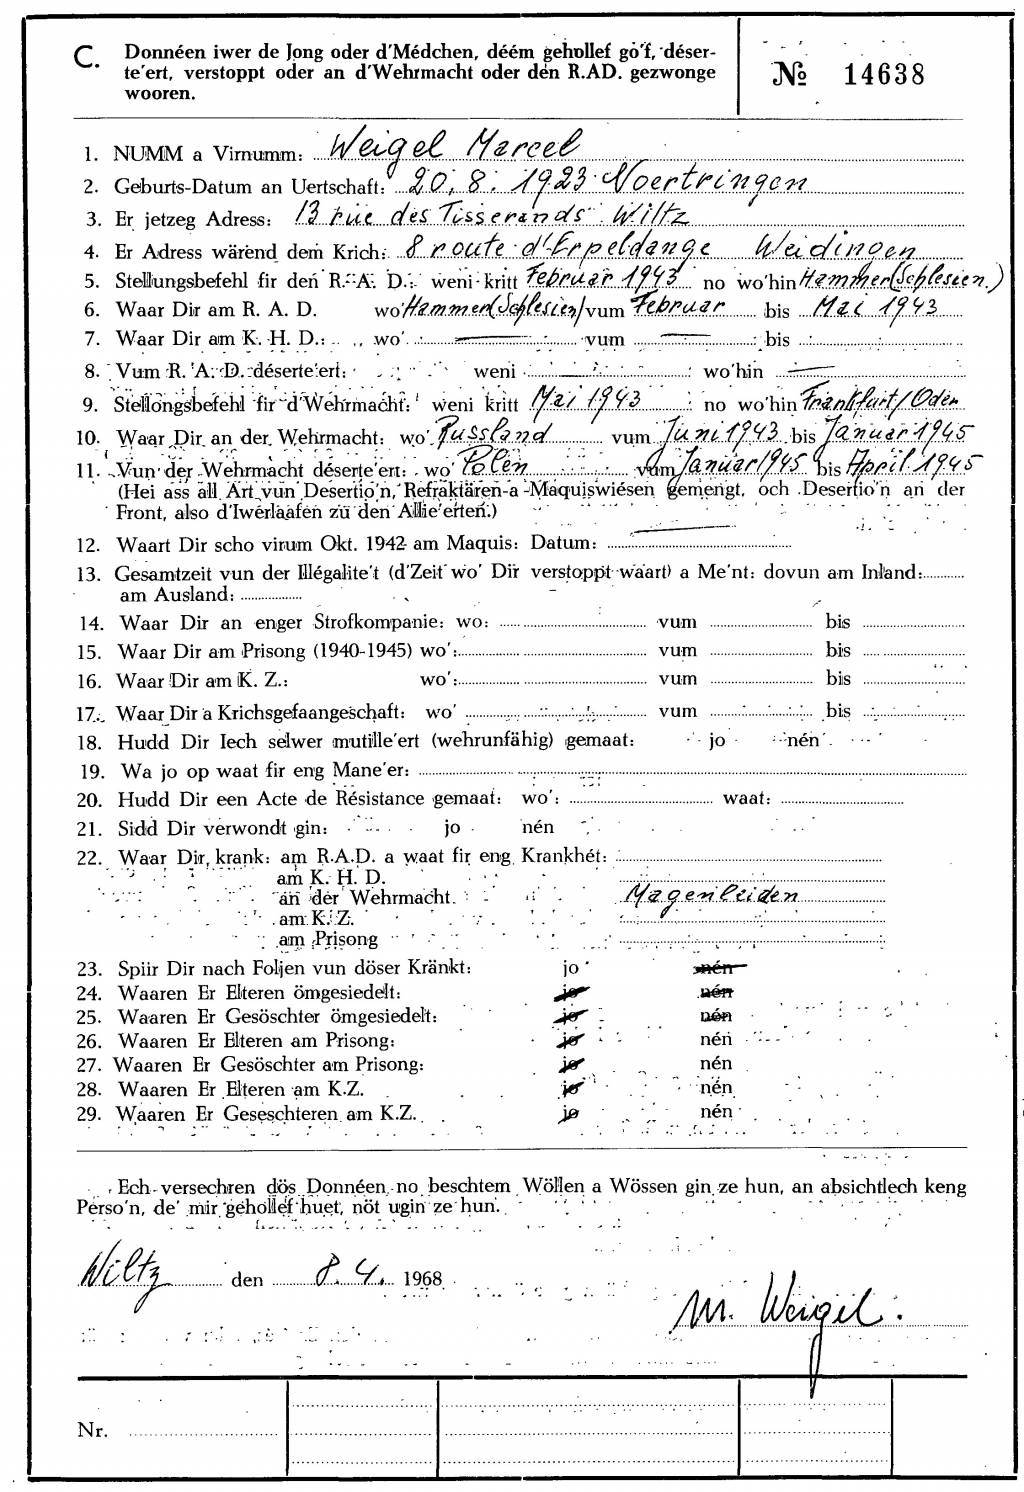 C. Donnéen iwer de Jong oder d'Médchen, déém gehollef go'f, déser-
te'ert, verstoppt oder an d'Wehrmacht oder den R.AD. gezwonge
wooren.
№ 14638
1. NUMM a Virnumm: Weigel Marcel
2. Geburts-Datum an Uertschaft: 20. 8. 1923 Noertringen
3. Er jetzeg Adress: 13 rue des Tisserands Wiltz
4. Er Adress wärend dem Krich: 8 route d'Erpeldange Weidingen
5. Stellungsbefehl fir den R. A. D.: weni kritt Februar 1943 no wo'hin Hammer (Schlesien.)
6. Waar Dir am R. A. D. wo' Hammer (Schlesien) vum Februar bis Mai 1943
7. Waar Dir am K. H. D.: wo' — vum — bis
8. Vum R. A. D. déserte'ert: weni wo'hin —
9. Stellongsbefehl fir d'Wehrmacht: weni kritt Mai 1943 no wo'hin Frankfurt/Oder
10. Waar Dir an der Wehrmacht: wo' Russland vum Juni 1943 bis Januar 1945
11. Vun der Wehrmacht déserte'ert: wo' Polen vum Januar 1945 bis April 1945
(Hei ass all Art vun Desertio'n, Refraktären-a -Maquiswiésen gemengt, och Desertio'n an der
Front, also d'Iwerlaafen zu den Allie'erten.)
12. Waart Dir scho virum Okt. 1942 am Maquis: Datum: —
13. Gesamtzeit vun der Illégalite't (d'Zeit wo' Dir verstoppt waart) a Me'nt: dovun am Inland:
am Ausland:
14. Waar Dir an enger Strofkompanie: wo: vum bis
15. Waar Dir am Prisong (1940-1945) wo': vum bis
16. Waar Dir am K. Z.: wo': vum bis
17. Waar Dir a Krichsgefaangeschaft: wo' vum bis
18. Hudd Dir Iech selwer mutille'ert (wehrunfähig) gemaat: jo nén
19. Wa jo op waat fir eng Mane'er:
20. Hudd Dir een Acte de Résistance gemaat: wo': waat:
21. Sidd Dir verwondt gin: jo nén
22. Waar Dir krank: am R.A.D. a waat fir eng Krankhét:
am K. H. D.
an der Wehrmacht Magenleiden
am K. Z.
am Prisong
23. Spiir Dir nach Foljen vun döser Kränkt: jo nén
24. Waaren Er Elteren ömgesiedelt: jo nén
25. Waaren Er Gesöschter ömgesiedelt: jo nén
26. Waaren Er Elteren am Prisong: jo nén
27. Waaren Er Gesöschter am Prisong: jo nén
28. Waaren Er Elteren am K.Z. jo nén
29. Waaren Er Geseschteren am K.Z. jo nén
Ech versechren dös Donnéen no beschtem Wöllen a Wössen gin ze hun, an absichtlech keng
Perso'n, de' mir gehollef huet, nöt ugin ze hun.
Wiltz den 8. 4. 1968
M. Weigel.
Nr.